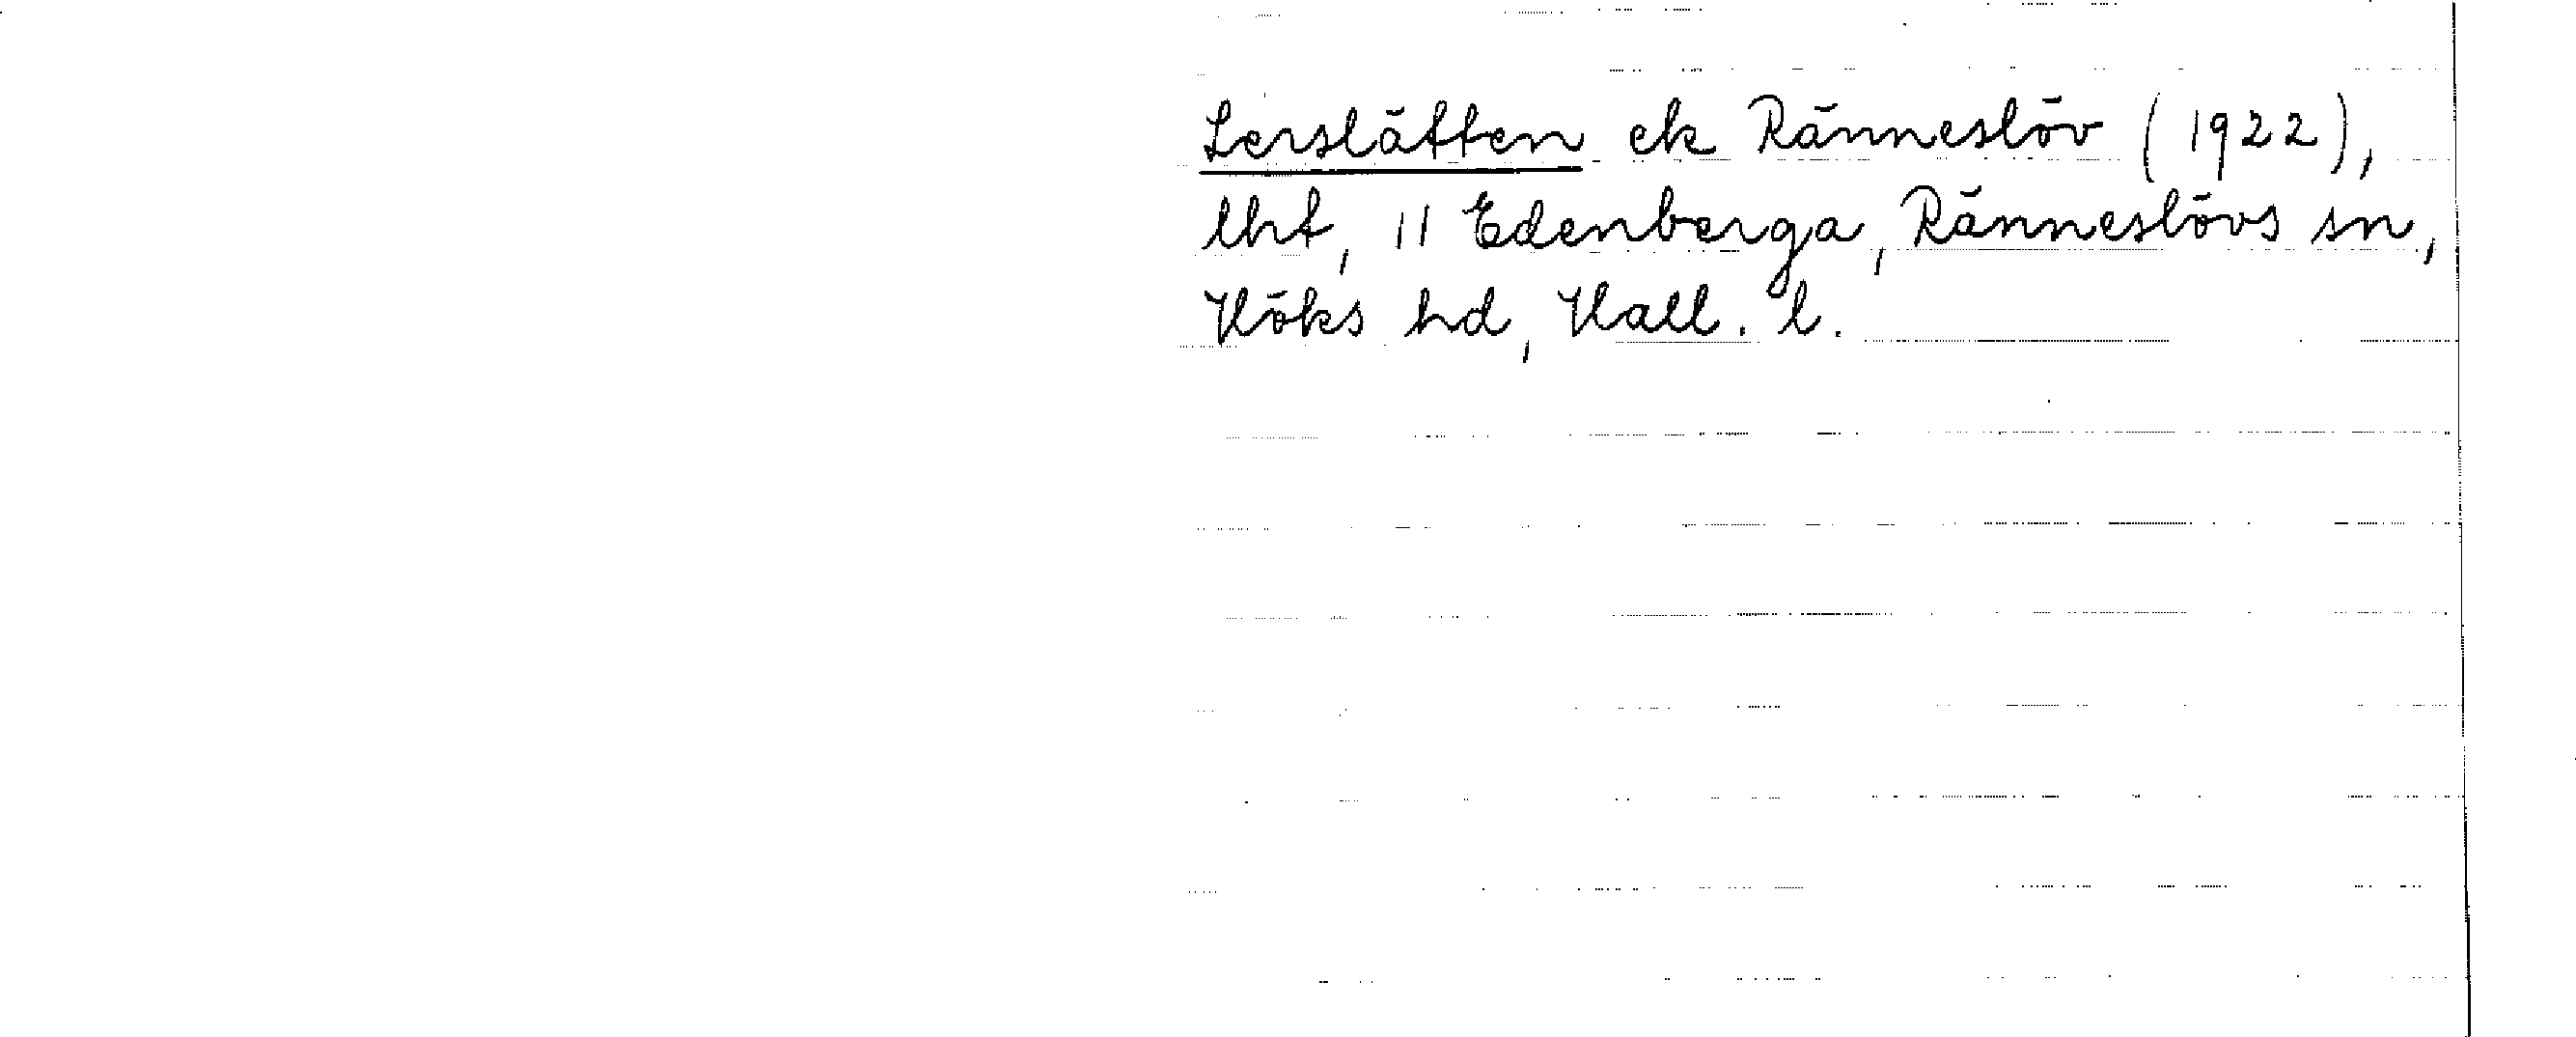 Lerslätten ek Ränneslöv (1922),
lht, 11 Edenberga, Ränneslövs sn,
Höks hd, Hall. l.